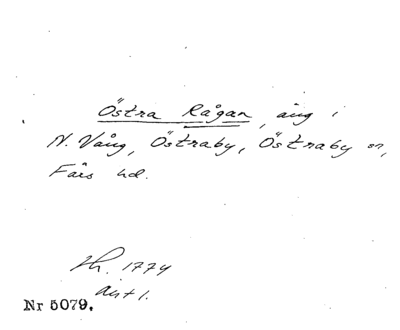 Östra Rågan, äng i
N. Vång, Östraby, Östraby sn,
Färs hd.
1774
Nr 5079.